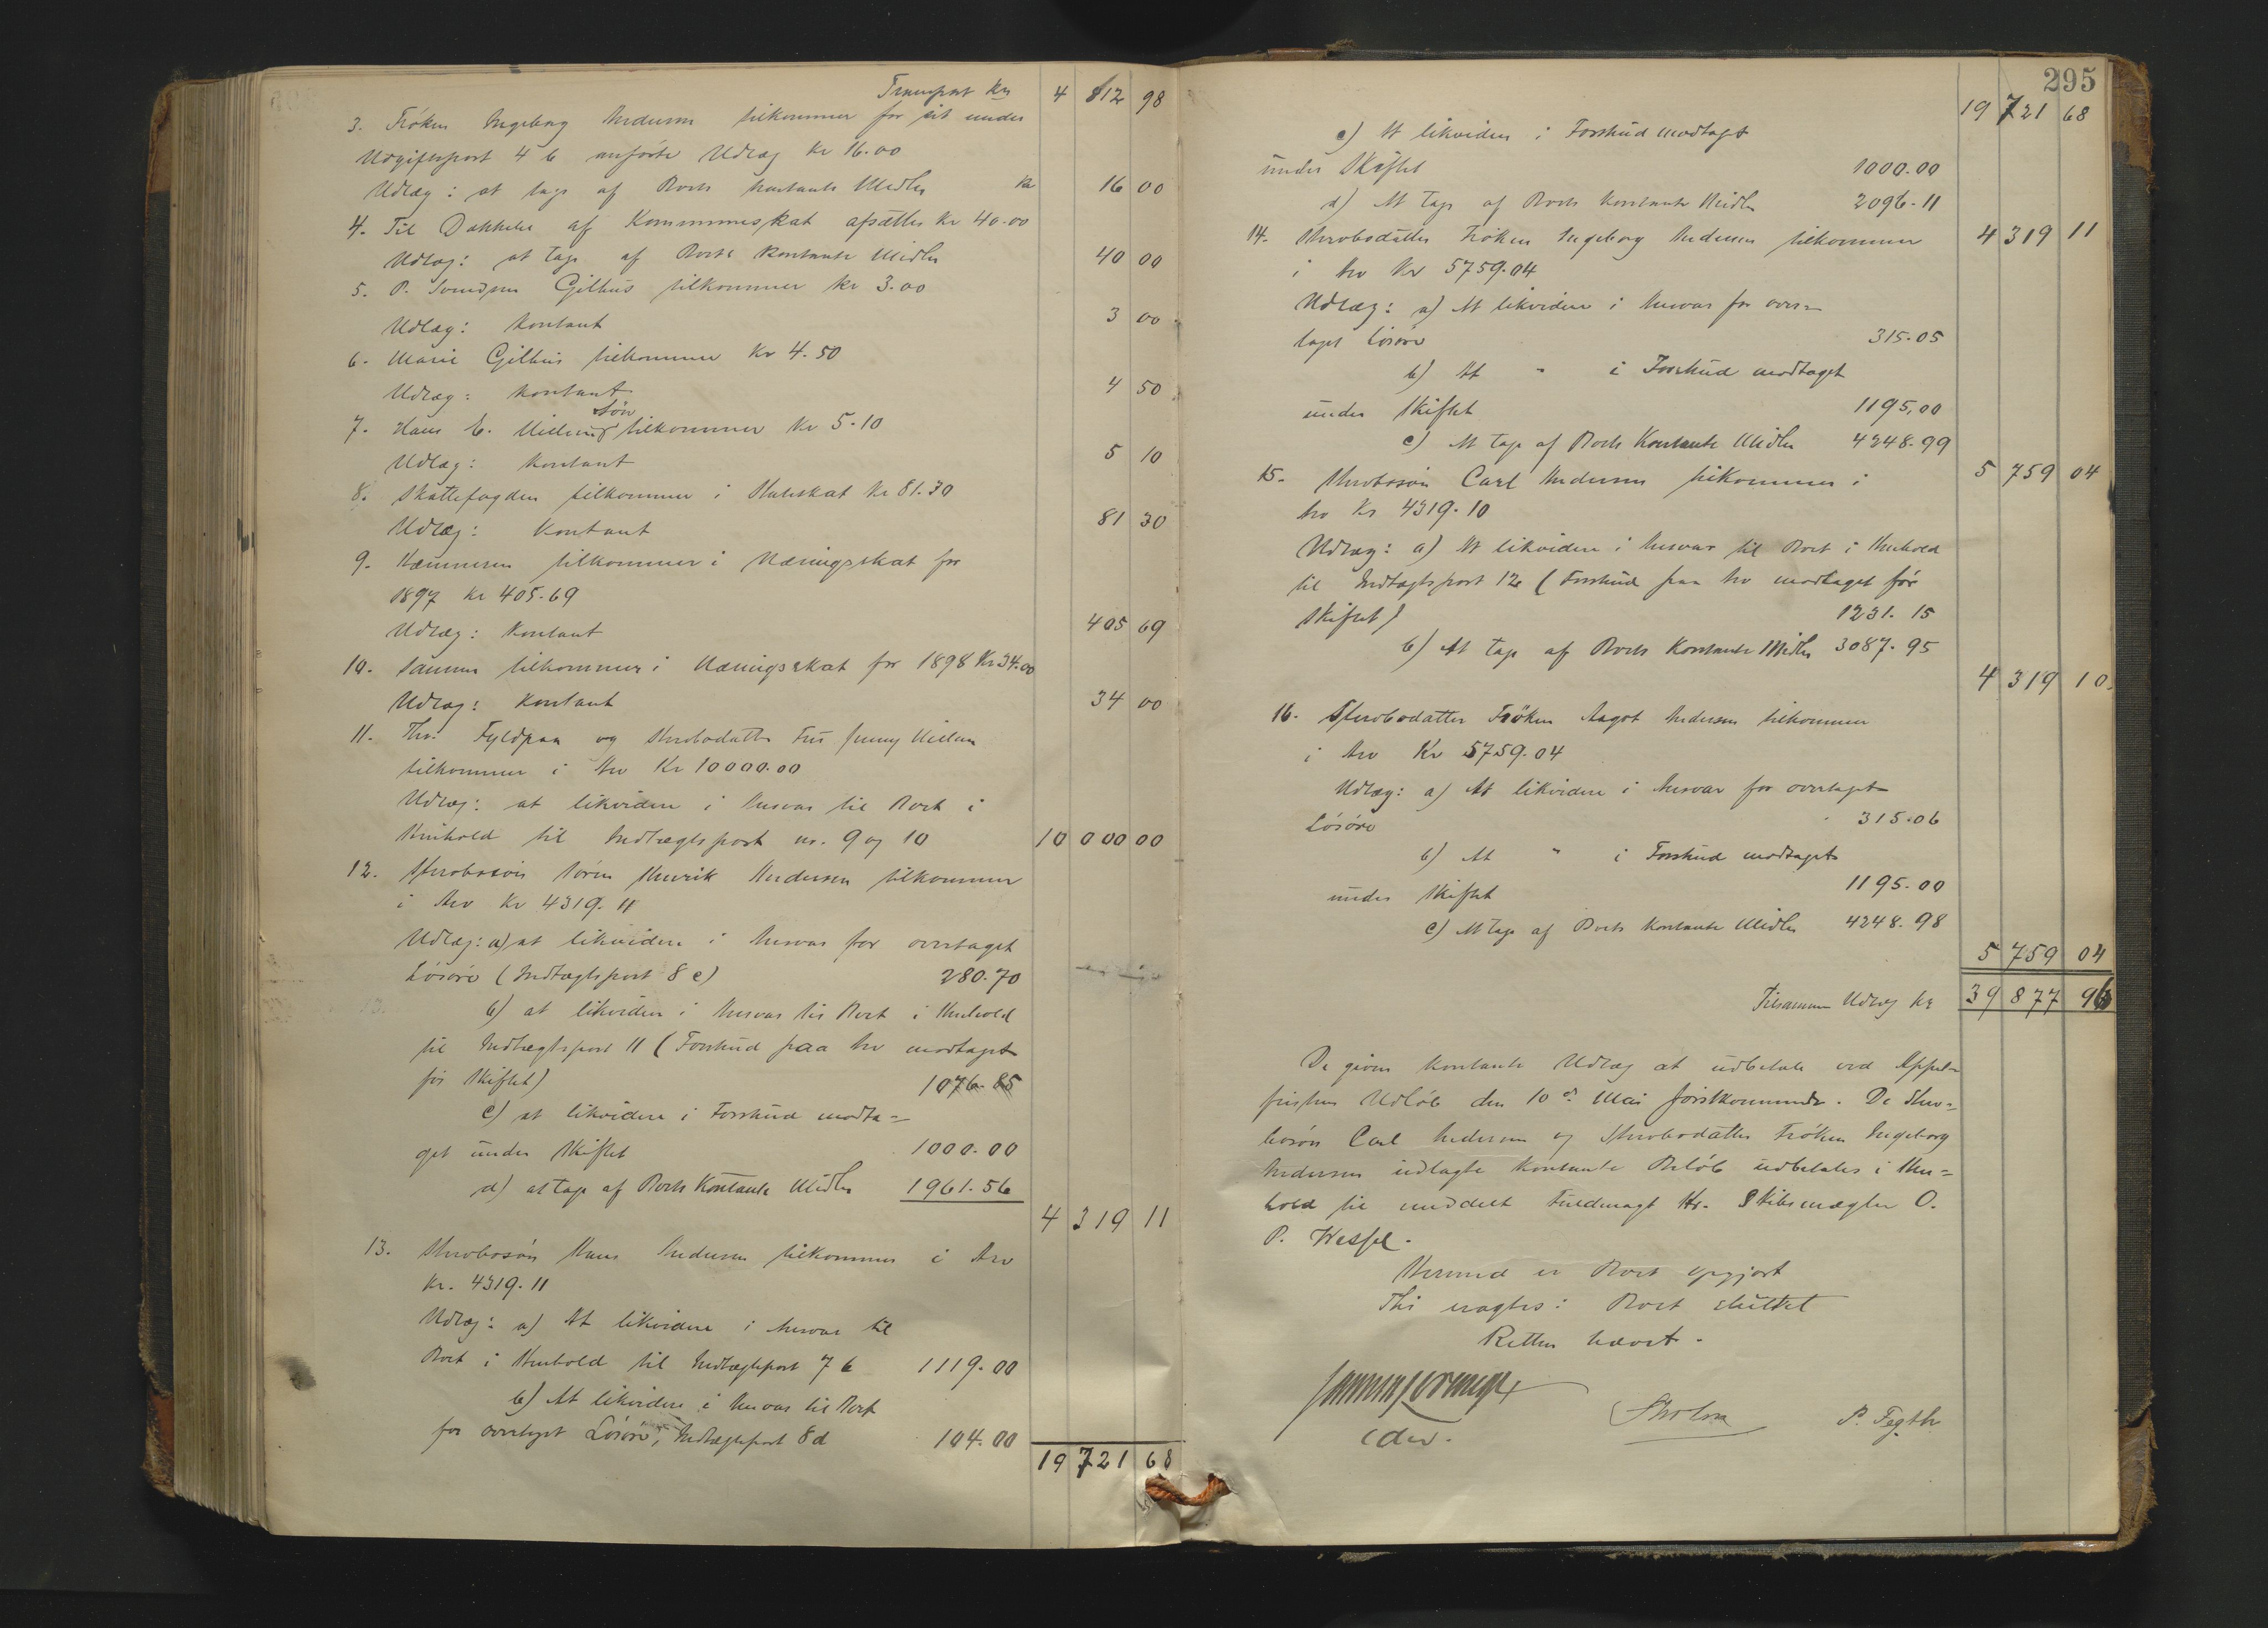 Transport Kr 4 812 98
3. Frøken Ingeborg Andersen tilkommer for sit under
Udgiftspost 4 b anførte Udlæg Kr 16.00
Udlæg: at tage af Boets kontante Midler Kr 16 00
4. Til Dækkelse af Kommuneskat afsættes Kr 40.00
Udlæg: at tage af Boets kontante Midler 40 00
5. P. Svendsen Gilhus tilkommer Kr 3.00
Udlæg: Kontant 3 00
6. Marie Gilhus tilkommer Kr 4.50
Udlæg: Kontant 4 50
søn
7. Hans E. tilkommer Kr 5.10
Udlæg: Kontant 5 10
8. Skattefogden tilkommer i Statsskat Kr 81.30
Udlæg: Kontant 81 30
9. Kæmneren tilkommer i Næringsskat for
1897 Kr 405.69
Udlæg: Kontant 405 69
10. Samme tilkommer i Næringsskat for 1898 Kr 34.00
Udlæg: Kontant 34 00
11. Thv. Fyldpaa og Stervbodatter Fru Jenny Nielsen
tilkommer i Arv Kr 10000.00
Udlæg: at likvidere i Ansvar til Boet i
Henhold til Indtægtspost nr. 9 og 10 10 000 00
12. Stervbosøn Søren Henrik Andersen tilkommer
i Arv Kr 4319.11
Udlæg: a) at likvidere i Ansvar for overtaget
Løsøre (Indtægtspost 8 c) 280.70
b) at likvidere i Ansvar til Boet i Henhold
til Indtægtspost 11 (Forskud paa Arv modtaget
før Skiftet) 1076.85
c) at likvidere i Forskud modta=
get under Skiftet 1000.00
d) at tage af Boets Kontante Midler 1961.56
4 319 11
13. Stervbosøn Hans Andersen tilkommer i Arv
Kr. 4319.11
Udlæg: a) At likvidere i Ansvar til
Boet i Henhold til Indtægtspost 7 b 1119.00
b) At likvidere i Ansvar til Boet
for overtaget Løsøre, Indtægtspost 8 d 104.00
19 721 68
295
19 721 68
c) At likvidere i Forskud modtaget
under Skiftet 1000.00
d) At tage af Boets kontante Midler 2096.11
4 319 11
14. Stervbodatter Frøken Ingeborg Andersen tilkommer
i Arv Kr 5759.04
Udlæg: a) At likvidere i Ansvar for over=
taget Løsøre 315.05
b) At " i Forskud modtaget
under Skiftet 1195.00
c) At tage af Boets Kontante Midler 4248.99
5 759 04
15. Stervbosøn Carl Andersen tilkommer i
Arv Kr 4319.10
Udlæg: a) At likvidere i Ansvar til Boet i Henhold
til Indtægtspost 12 (Forskud paa Arv modtaget før
Skiftet) 1231.15
b) At tage af Boets Kontante Midler 3087.95
4 319 10
16. Stervbodatter Frøken Aagot Andersen tilkommer
i Arv Kr 5759.04
Udlæg: a) At likvidere i Ansvar for overtaget
Løsøre 315.06
b) At " i Forskud modtaget
under Skiftet 1195.00
c) At tage af Boets kontante Midler 4248.98
5 759 04
Tilsammen Udlæg Kr 39 877 96
De givne kontante Udlæg at udbetale ved Appel=
fristens Udløb den 10de Mai førstkommende. De Sterv=
bosøn Carl Andersen og Stervbodatter Frøken Ingeborg
Andersen udlagte kontante Beløb udbetales i Hen=
hold til meddelt Fuldmagt Hr. Skibsmægler O.
P. Wessel.
Hermed er Boet opgjort
Thi eragtes: Boet sluttet
Retten hævet.
P. Fegth